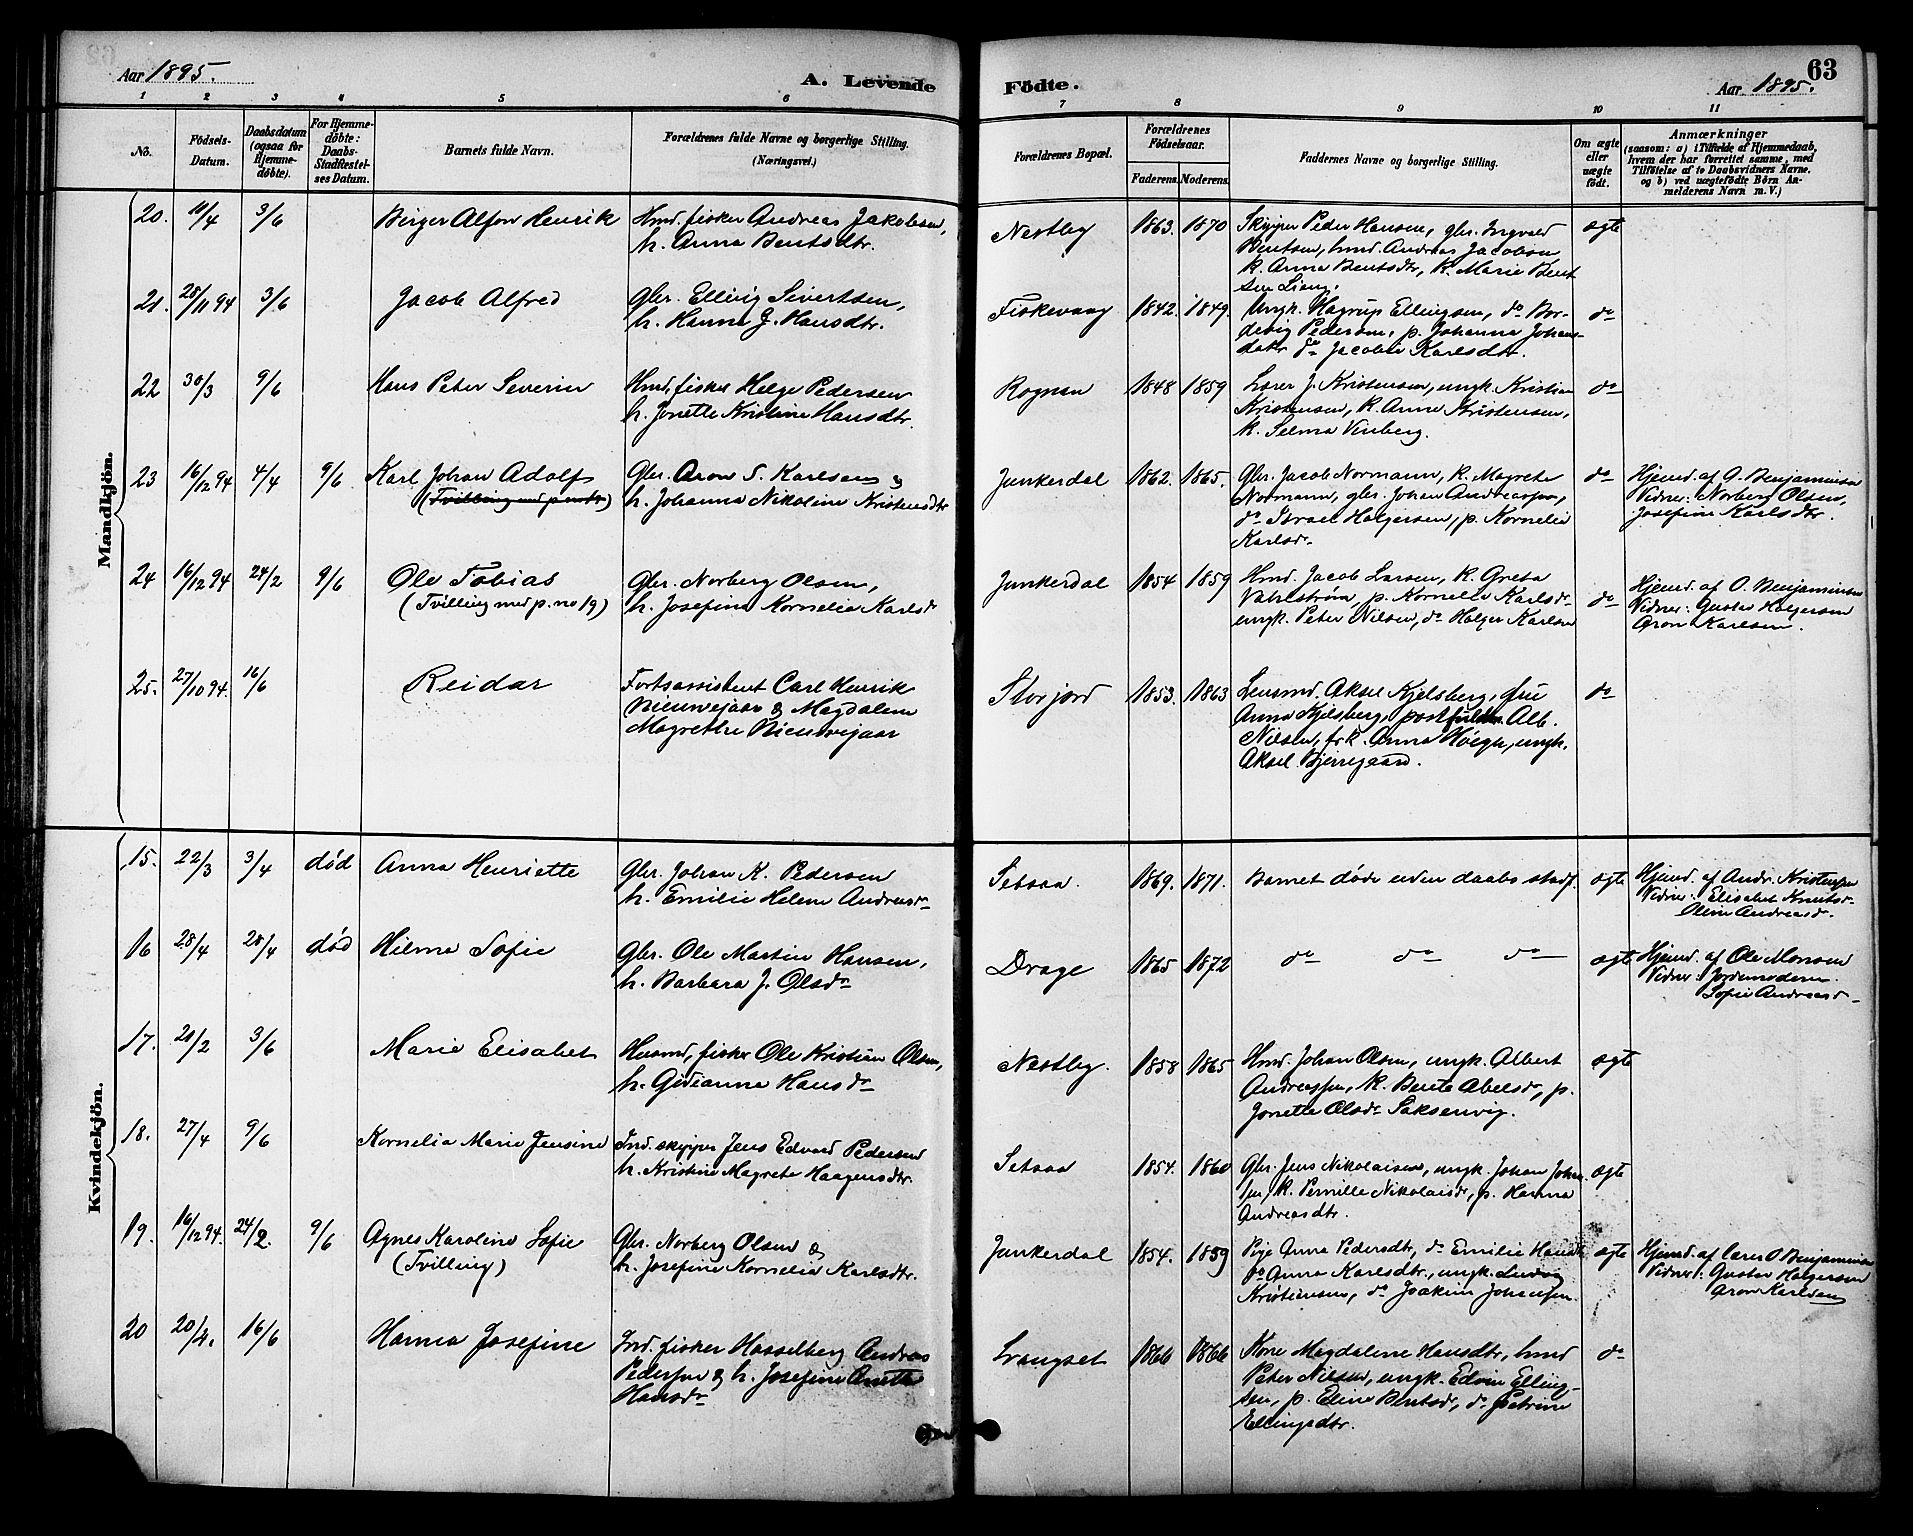 Aar 1895.
A. Levende
Födte.
Aar 1895.
63
1 2 3 4 5 6 7 8 9 10 11
No.
Födsels-
Datum.
Daabsdatum
(ogsaa for
Hjemme-
döbte).
For Hjemme-
döbte:
Daabs-
Stadfæstel-
ses Datum.
Barnets fulde Navn.
Forældrenes fulde Navne og borgerlige Stilling.
(Næringsvei.)
Forældrenes Bopæl.
Forældrenes
Födselsaar.
Faderens. Moderens.
Faddernes Navne og borgerlige Stilling.
Om ægte
eller
uægte
födt.
Anmærkninger
(saasom: a) i Tilfælde af Hjemmedaab,
hvem der har forrettet samme, med
Tilföielse af to Daabsvidners Navne,
og b) ved uægtefödte Börn An-
melderens Navn m. V.)
Mandkjön.
20. 11/4 3/6 Birger Alfon Henrik
Hmd. fisker Andreas Jakobsen,
h. Anna Bentsdtr.
Nestby 1863. 1870
Skipper Peder Hansen, gbr. Ingvald
Bentsen, hmd. Andreas Jacobsen
k. Anna Bentsdtr, k. Marie Bent
sen Liang.
ægte
21. 28/11 94 3/6 Jacob Alfred
Gbr. Elling Sivertsen,
h. Hanna J. Hansdtr.
Fiskevaag 1842. 1849.
Ungk. Hagrup Ellingsen, do Bor-
devig Pedersen, p. Johanna Johans-
datr do Jacobine Karlsdtr.
do
22 30/3 9/6 Hans Peter Severin
Hmd. fisker Helge Pedersen
h. Jonette Kristine Hansdtr.
Rognan 1848 1859
Lærer J. Kristensen, ungk. Kristian
Kristensen, k. Anne Kristensen,
k. Selma Vinberg.
do
23 16/12 94 4/4 9/6 Karl Johan Adolf
(Tvilling med p. )
Gbr. Aron S. Karlsen &
h. Johanna Nikoline Kristensdtr
Junkerdal 1862. 1865.
Gbr. Jacob Normann, k. Magrete
Normann, gbr. Johan Andreassen,
do Israel Holgersen, p. Kornelia
Karlsd.
do
Hjemd. af O. Benjaminsen
Vidner: Norberg Olsen,
Josefine Karlsdtr.
24 16/12 94 24/2 9/6 Ole Tobias
(Tvilling med p. no 19)
Gbr. Norberg Olsen,
h. Josefine Kornelia Karlsd
Junkerdal 1854 1859
Hmd. Jacob Larsen, k. Greta
Vahlstrøm, p. Kornelia Karlsd
ungk. Peter Nilsen, do Holger Karlsen
do
Hjemd. af O. Benjaminsen
Vidner: Gustav Holgersen
Aron Karlsen.
25. 27/10 94. 16/6 Reidar
Forstassistent Carl Henrik
Nieuwejaar & Magdalene
Magrethe Nieuwejaar
Storjord 1853. 1863
Lensmd. Aksel Kjelsberg, fru
Anna Kjelsberg, postfuldm. Alb.
Nilsen, frk. Anna Høegh, ungk.
Aksel Bjerregaard.
do
Kvindekjön.
15. 22/3 3/4 død Anna Henriette
Gbr. Johan K. Pedersen
h. Emilie Helene Andreasd
Setsaa. 1869. 1871.
Barnet døde uden daabs stadf.
ægte
Hjemd. af Andr. Kristensen
Vidner: Elisabet Knutsd
Oline Andreasd.
16 28/4 28/4 død Hilma Sofie
Gbr. Ole Martin Hansen,
h. Barbara J. Olsd
Drage 1865 1872
do do do
ægte
Hjemd. af Ole Monsen
Vidner: Jordemoderen
Sofie Andreasd
17. 21/2 3/6 Marie Elisabet
Husmd, fisker Ole Kristian Olsen,
h. Gidianna Hansd
Nestby. 1858 1865
Hmd. Johan Olsen, ungk. Albert
Andreassen, k. Bente Abelsd, p.
Jonette Olsd Saksenvig.
ægte
18. 27/4 9/6 Kornelia Marie Jensine
Ind. skipper Jens Edvard Pedersen
h. Kristine Magrete Haagensdtr.
Setsaa 1854. 1860
Gbr. Jens Nikolaisen, ungk. Johan Johan
sen, k. Pernille Nikolaisd, p. Hanna
Andreasdtr.
ægte
19. 16/12 94. 24/2. 9/6 Agnes Karoline Sofie
(Tvilling)
Gbr. Norberg Olsen &
h. Josefine Kornelia Karlsdtr.
Junkerdal 1854. 1859
Pige Anna Pedersdtr, do Emilie Hansd
do Anna Karlsdtr, ungk. Ludvig
Kristensen, do Joakim Johansen.
ægte
Hjemd. af Lærer O Benjaminsen
Vidner: Gustav Holgersen
Aron Karlsen
20 20/4. 16/6 Hanna Josefine
Ind. fisker Hasselberg Andreas
Pedersen & h. Josefine Anetta
Hansd
Langset 1866 1866
Kone Magdalene Hansdtr, hmd
Peter Nilsen, ungk. Edvin Elling-
sen, p. Eline Bentsd, do Petrine
Ellingsdtr.
do